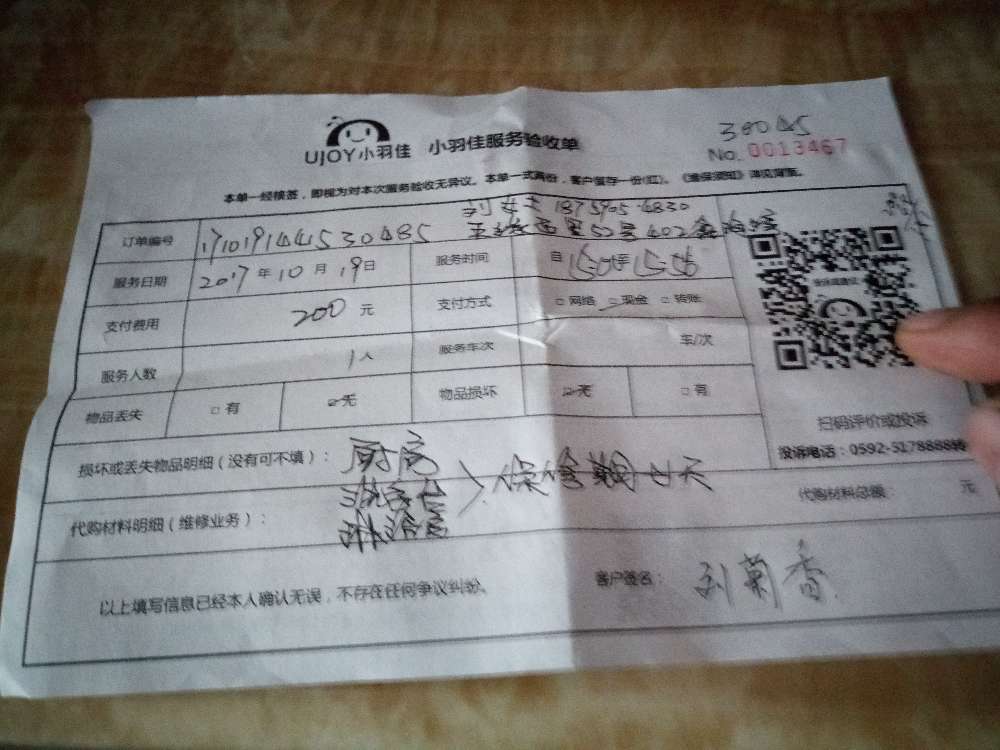 30045
UJOY小羽佳 小羽佳服务验收单
No. 0013467
本单一经核签，即视为对本次服务验收无异议。本单一式两份，客户留存一份(红)。《维保须知》详见背面。
刘女士 18759054830
西里52号402
订单编号 171019144530485
服务日期 2017年10月19日 服务时间 自
支付费用 200元 支付方式 □网络 □现金 □转账
服务人数 1人 服务车次 车/次
物品丢失 □有 □无 物品损坏 □无 □有
扫码评价或投诉
投诉电话：0592-517888
损坏或丢失物品明细（没有可不填）： 厨房
洗衣台 保修期 七天
代购材料明细（维修业务）： 代购材料总额： 元
以上填写信息已经本人确认无误，不存在任何争议纠纷。 客户签名： 刘菊香